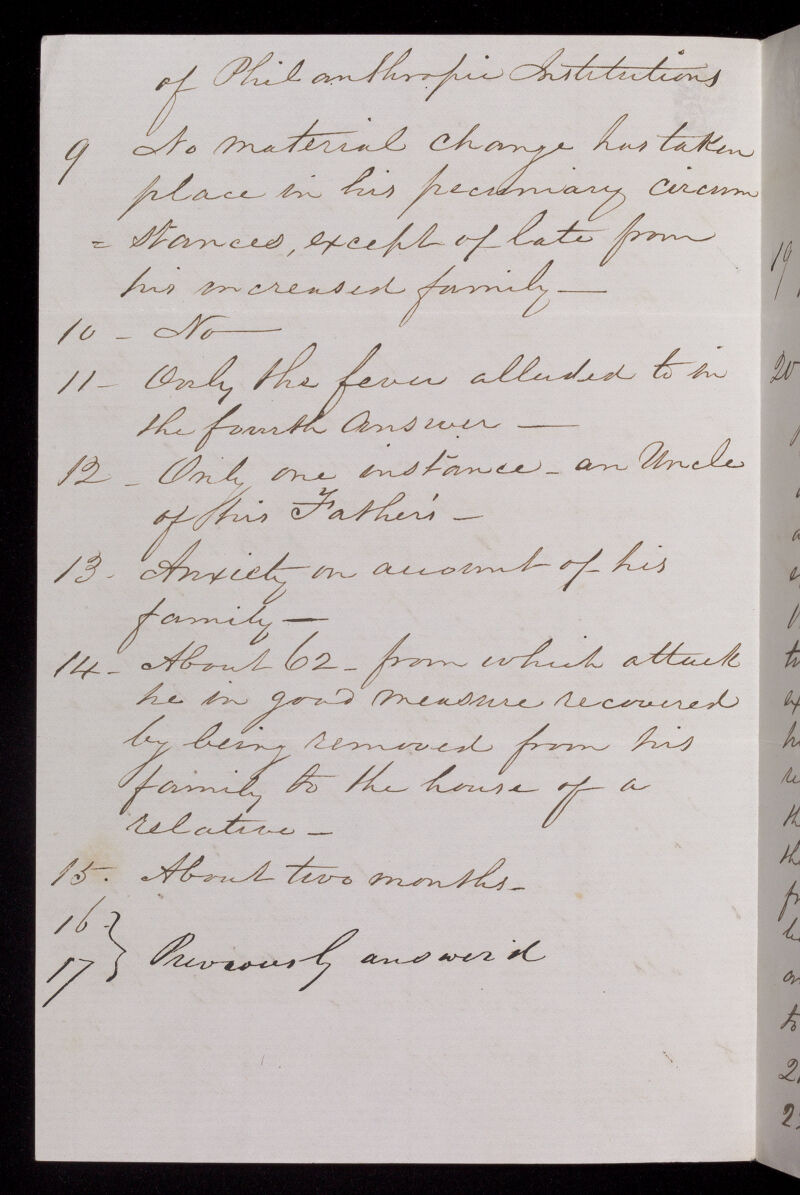 of Philanthropic Institutions
9 No material change has taken
place in his pecuniary circum
= stances, except of late from
his increased family —
10 - No —
11 - Only the fever alluded to in
the fourth answer —
12 - Only one instance - an Uncle
of his Father's -
13 - Anxiety on account of his
family —
14 - About 62 - from which attack
he in good measure recovered
by being removed from his
family to the house of a
relative -
15. About two months -
16 }
17 } Previously answer'd
19
20